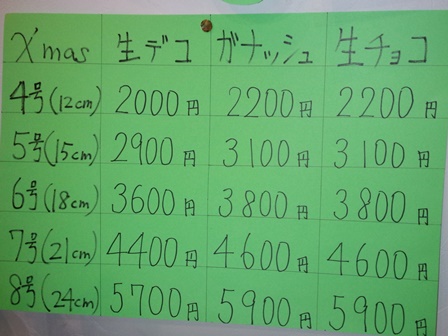 X'mas 生デコ ガナッシュ 生チョコ
4号(12cm) 2000円 2200円 2200円
5号(15cm) 2900円 3100円 3100円
6号(18cm) 3600円 3800円 3800円
7号(21cm) 4400円 4600円 4600円
8号(24cm) 5700円 5900円 5900円